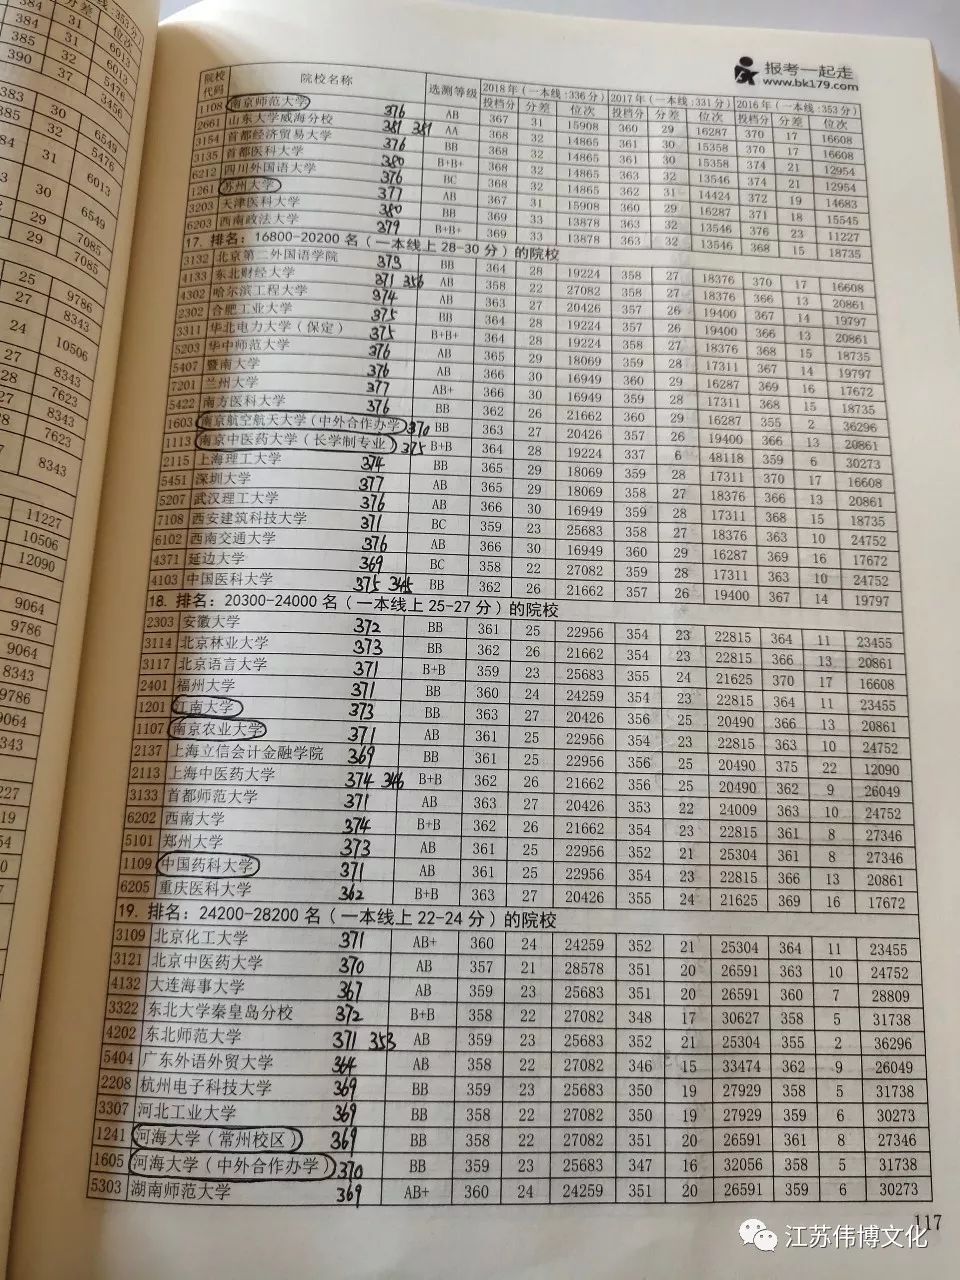 报考一起走
www.bk179.com
院校代码 院校名称 选测等级 2018年(一本线:336分) 2017年(一本线:331分) 2016年(一本线:353分)
投档分 分差 位次 投档分 分差 位次 投档分 分差 位次
1108 南京师范大学 376 AB 367 31 15908 360 29 16287 370 17 16608
2661 山东大学威海分校 381 381 AA 368 32 14865 361 30 15358 370 17 16608
3154 首都经济贸易大学 376 BB 368 32 14865 361 30 15358 374 21 12954
3135 首都医科大学 380 B+B+ 368 32 14865 363 32 13546 374 21 12954
6212 四川外国语大学 376 BC 368 32 14865 362 31 14424 372 19 14683
1261 苏州大学 377 AB 367 31 15908 360 29 16287 371 18 15545
3203 天津医科大学 380 BB 369 33 13878 363 32 13546 376 23 11227
6203 西南政法大学 379 B+B+ 369 33 13878 363 32 13546 368 15 18735
17. 排名:16800-20200名(一本线上28-30分)的院校
3132 北京第二外国语学院 373 BB 364 28 19224 358 27 18376 370 17 16608
4133 东北财经大学 371 356 AB 358 22 27082 358 27 18376 366 13 20861
4302 哈尔滨工程大学 374 AB 363 27 20426 357 26 19400 367 14 19797
2302 合肥工业大学 375 BB 364 28 19224 357 26 19400 366 13 20861
3311 华北电力大学(保定) 375 B+B+ 364 28 19224 358 27 18376 368 15 18735
5203 华中师范大学 376 AB 365 29 18069 359 28 17311 367 14 19797
5407 暨南大学 376 AB 366 30 16949 360 29 16287 369 16 17672
7201 兰州大学 377 AB+ 366 30 16949 359 28 17311 368 15 18735
5422 南方医科大学 376 BB 362 26 21662 360 29 16287 355 2 36296
1603 南京航空航天大学(中外合作办学) 370 BB 363 27 20426 357 26 19400 366 13 20861
1113 南京中医药大学(长学制专业) 375 B+B 364 28 19224 337 6 48118 359 6 30273
2115 上海理工大学 374 BB 365 29 18069 359 28 17311 370 17 16608
5451 深圳大学 377 AB 365 29 18069 358 27 18376 366 13 20861
5207 武汉理工大学 376 AB 366 30 16949 359 28 17311 368 15 18735
7108 西安建筑科技大学 371 BC 359 23 25683 358 27 18376 363 10 24752
6102 西南交通大学 376 AB 366 30 16949 360 29 16287 369 16 17672
4371 延边大学 369 BC 358 22 27082 359 28 17311 363 10 24752
4103 中国医科大学 375 345 BB 362 26 21662 357 26 19400 367 14 19797
18. 排名:20300-24000名(一本线上25-27分)的院校
2303 安徽大学 372 BB 361 25 22956 354 23 22815 364 11 23455
3114 北京林业大学 373 BB 362 26 21662 354 23 22815 366 13 20861
3117 北京语言大学 371 B+B 359 23 25683 355 24 21625 370 17 16608
2401 福州大学 371 BB 360 24 24259 354 23 22815 364 11 23455
1201 江南大学 373 BB 363 27 20426 356 25 20490 366 13 20861
1107 南京农业大学 371 AB 361 25 22956 354 23 22815 363 10 24752
2137 上海立信会计金融学院 369 BB 361 25 22956 356 25 20490 375 22 12090
2113 上海中医药大学 374 346 B+B 362 26 21662 356 25 20490 362 9 26049
3133 首都师范大学 371 AB 363 27 20426 353 22 24009 363 10 24752
6202 西南大学 374 B+B 362 26 21662 354 23 22815 361 8 27346
5101 郑州大学 373 AB 361 25 22956 352 21 25304 361 8 27346
1109 中国药科大学 371 AB 361 25 22956 354 23 22815 366 13 20861
6205 重庆医科大学 362 B+B 363 27 20426 355 24 21625 369 16 17672
19. 排名:24200-28200名(一本线上22-24分)的院校
3109 北京化工大学 371 AB+ 360 24 24259 352 21 25304 364 11 23455
3121 北京中医药大学 370 AB 357 21 28578 351 20 26591 363 10 24752
4132 大连海事大学 367 AB 359 23 25683 351 20 26591 360 7 28809
3322 东北大学秦皇岛分校 372 B+B 358 22 27082 348 17 30627 358 5 31738
4202 东北师范大学 371 353 AB 359 23 25683 352 21 25304 355 2 36296
5404 广东外语外贸大学 364 AB 358 22 27082 346 15 33474 362 9 26049
2208 杭州电子科技大学 369 BB 359 23 25683 350 19 27929 358 5 31738
3307 河北工业大学 369 BB 358 22 27082 350 19 27929 359 6 30273
1241 河海大学(常州校区) 369 BB 358 22 27082 351 20 26591 361 8 27346
1605 河海大学(中外合作办学) 370 BB 359 23 25683 347 16 32056 358 5 31738
5303 湖南师范大学 369 AB+ 360 24 24259 351 20 26591 359 6 30273
117
江苏伟博文化